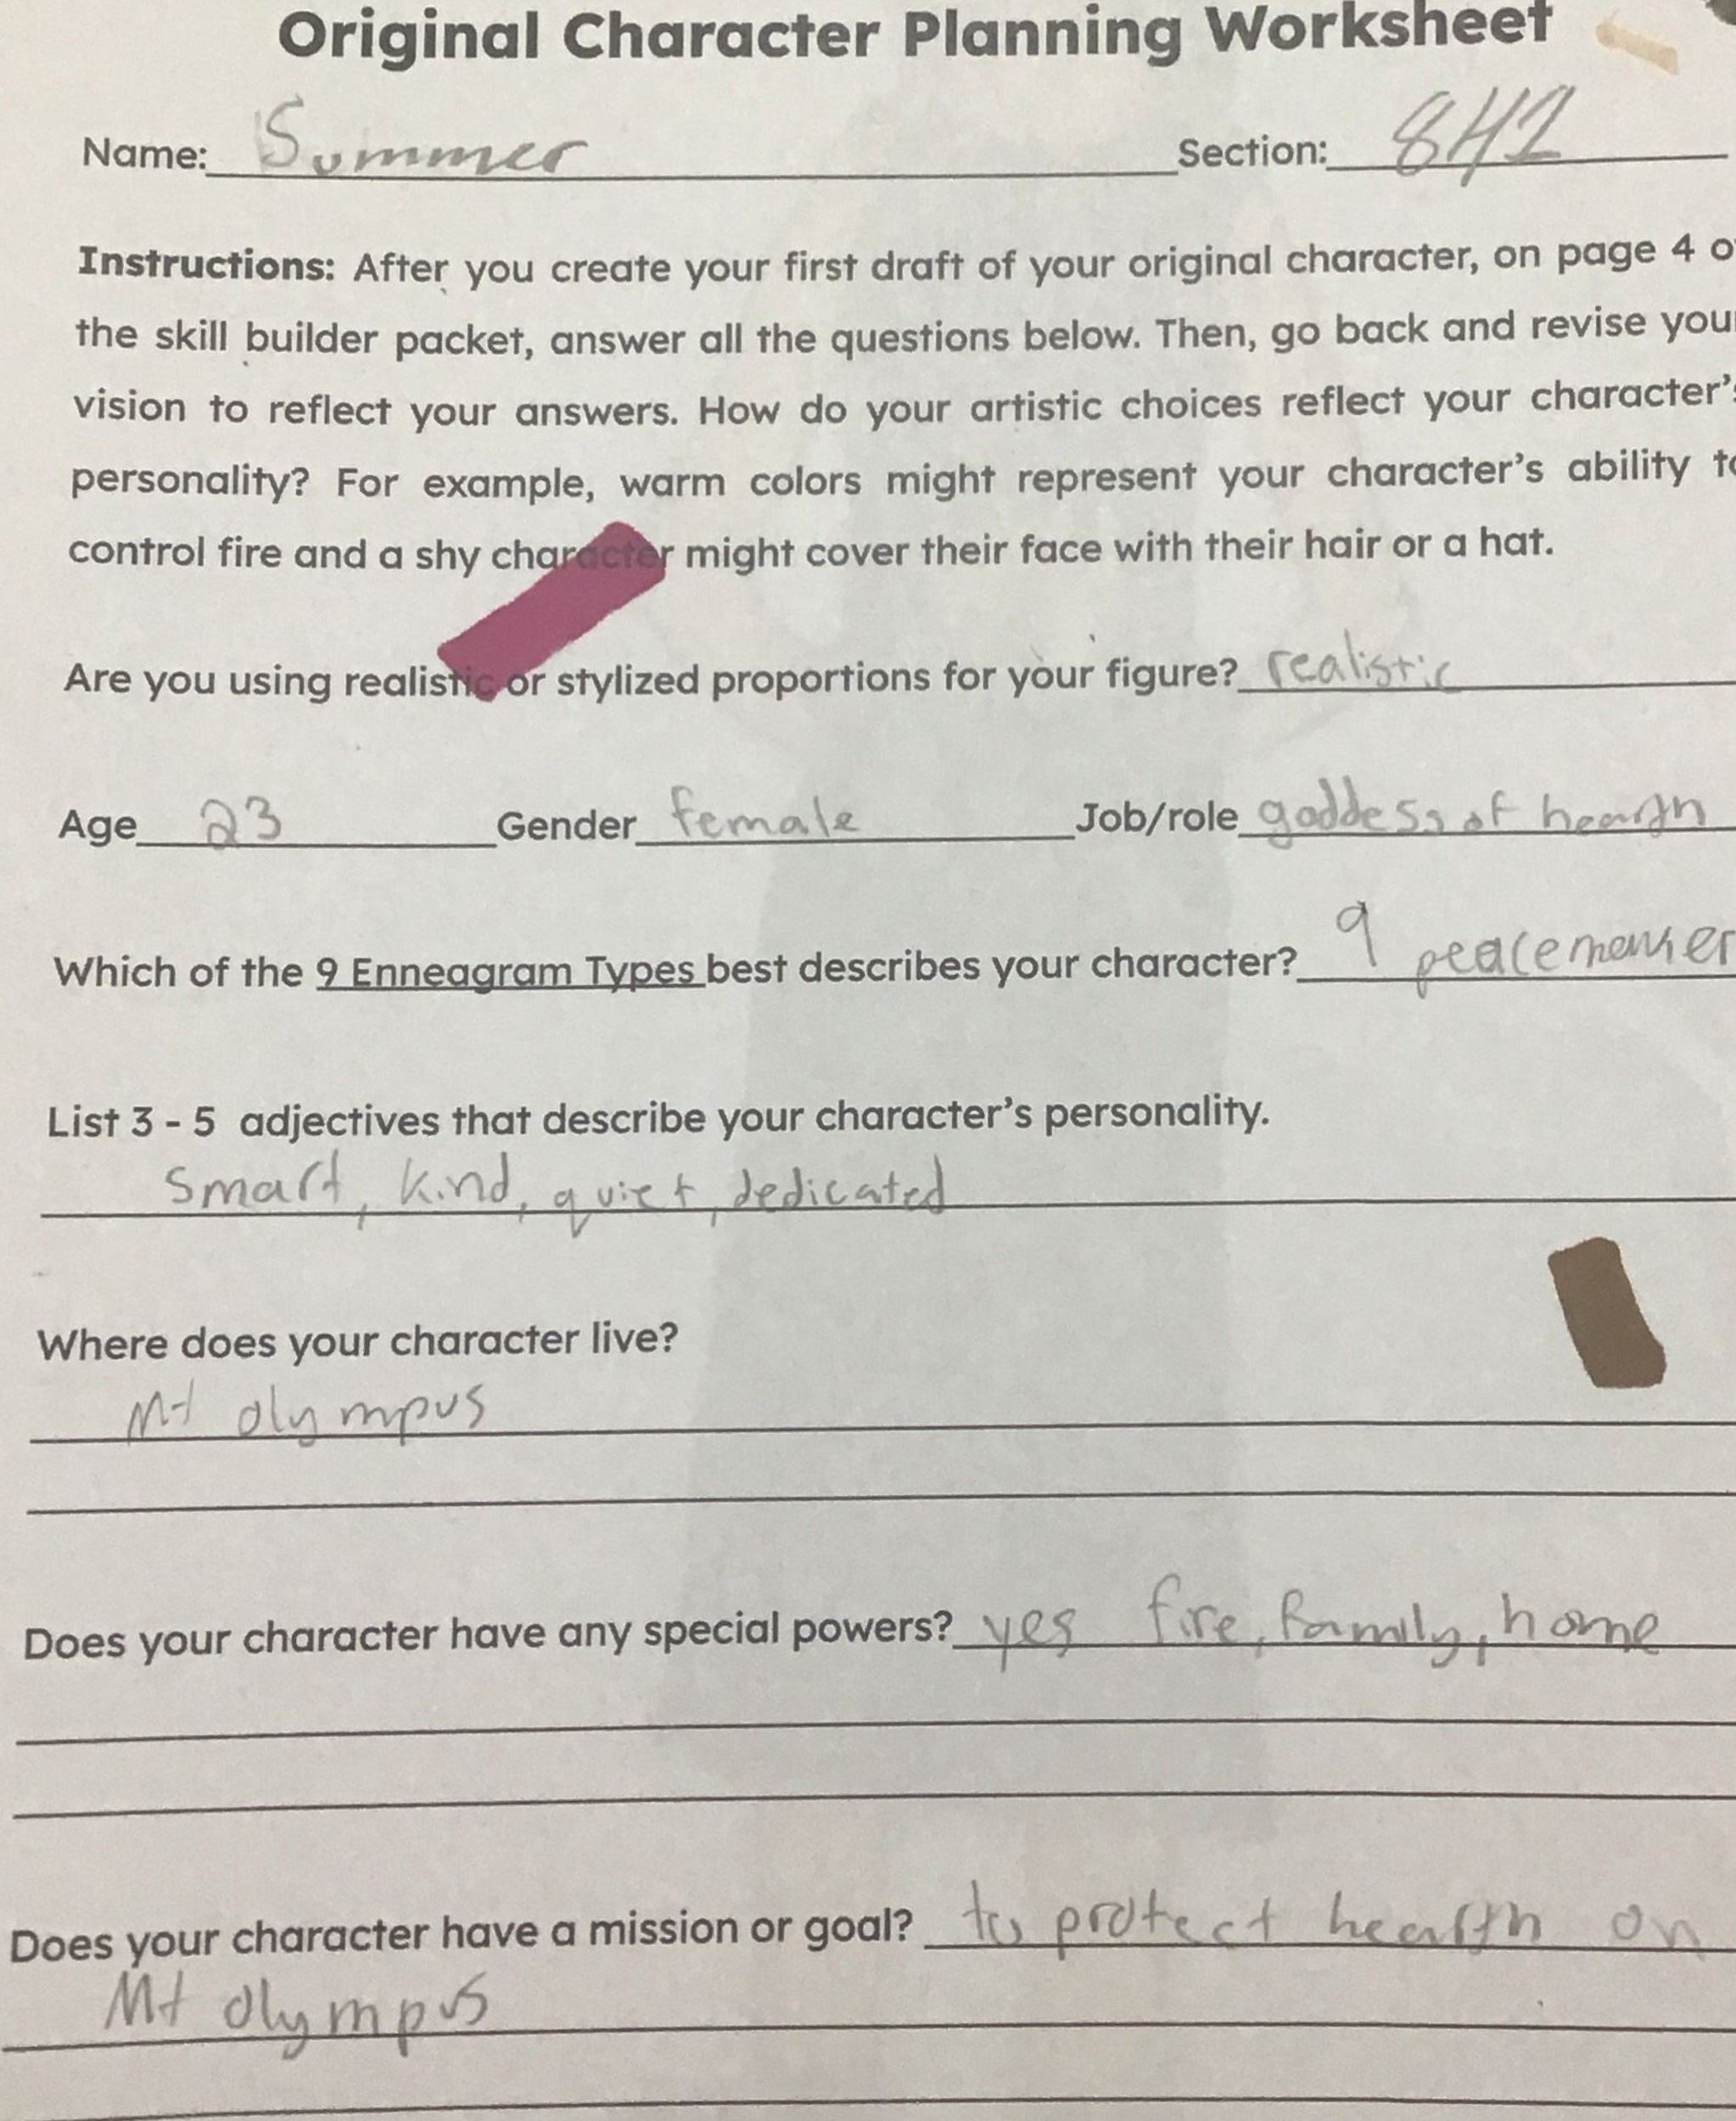 Original Character Planning Worksheet
Name: Summer Section: 8H1
Instructions: After you create your first draft of your original character, on page 4 o
the skill builder packet, answer all the questions below. Then, go back and revise you
vision to reflect your answers. How do your artistic choices reflect your character's
personality? For example, warm colors might represent your character's ability to
control fire and a shy character might cover their face with their hair or a hat.
Are you using realistic or stylized proportions for your figure? realistic
Age 23 Gender female Job/role goddess of hearth
Which of the 9 Enneagram Types best describes your character? 9 peacemaker
List 3 - 5 adjectives that describe your character's personality.
smart, kind, quiet, dedicated
Where does your character live?
Mt olympus
Does your character have any special powers? yes fire, family, home
Does your character have a mission or goal? to protect hearth on
Mt olympus